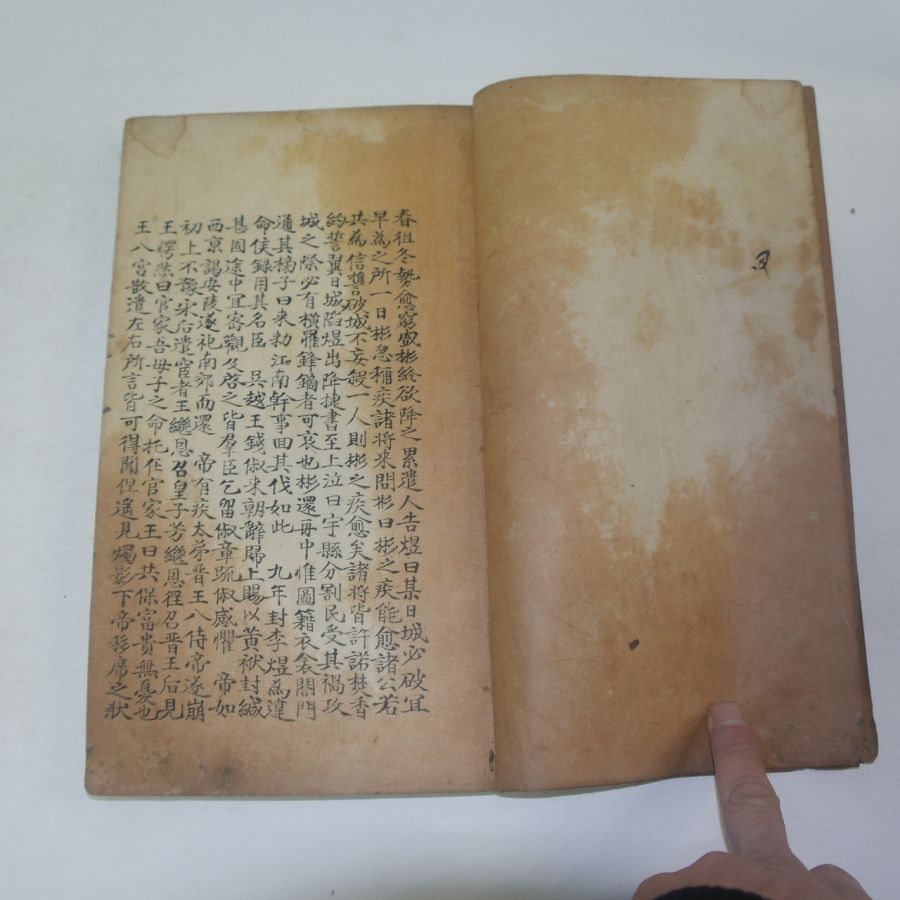 春徂冬勢愈窮盛彬終欲降之累遣人告煜曰某日城必破冝
早為之所一日彬忽稱疾諸將来問彬曰彬之疾能愈諸公若
共為信誓破城不妄殺一人則彬之疾愈矣諸將皆許諾焚香
約誓翼日城陷煜出降捷書至上泣曰宇縣分割民受其禍攻
城之際必有横罹鋒鏑者可哀也彬還舟中惟圖籍衣衾閤門
通其榜子曰来勑江南幹事囬其伐如此 九年封李煜為違
命侯録用其名臣 吳越王錢俶来朝辭歸上賜以黃袱封緘
甚固途中宜密觀及啓之皆羣臣乞留俶章疏俶感懼 帝如
西京謁安陵遂祀南郊而還 帝有疾太苐晋王入侍帝遂崩
初上不豫宋后遣宦者王繼恩召皇子芳繼恩徑召晋王后見
王愕然曰官家吾母子之命托在官家王曰共保富貴無憂也
王入宫散遣左右所言皆可得聞但遙見燭影下帝移席之狀